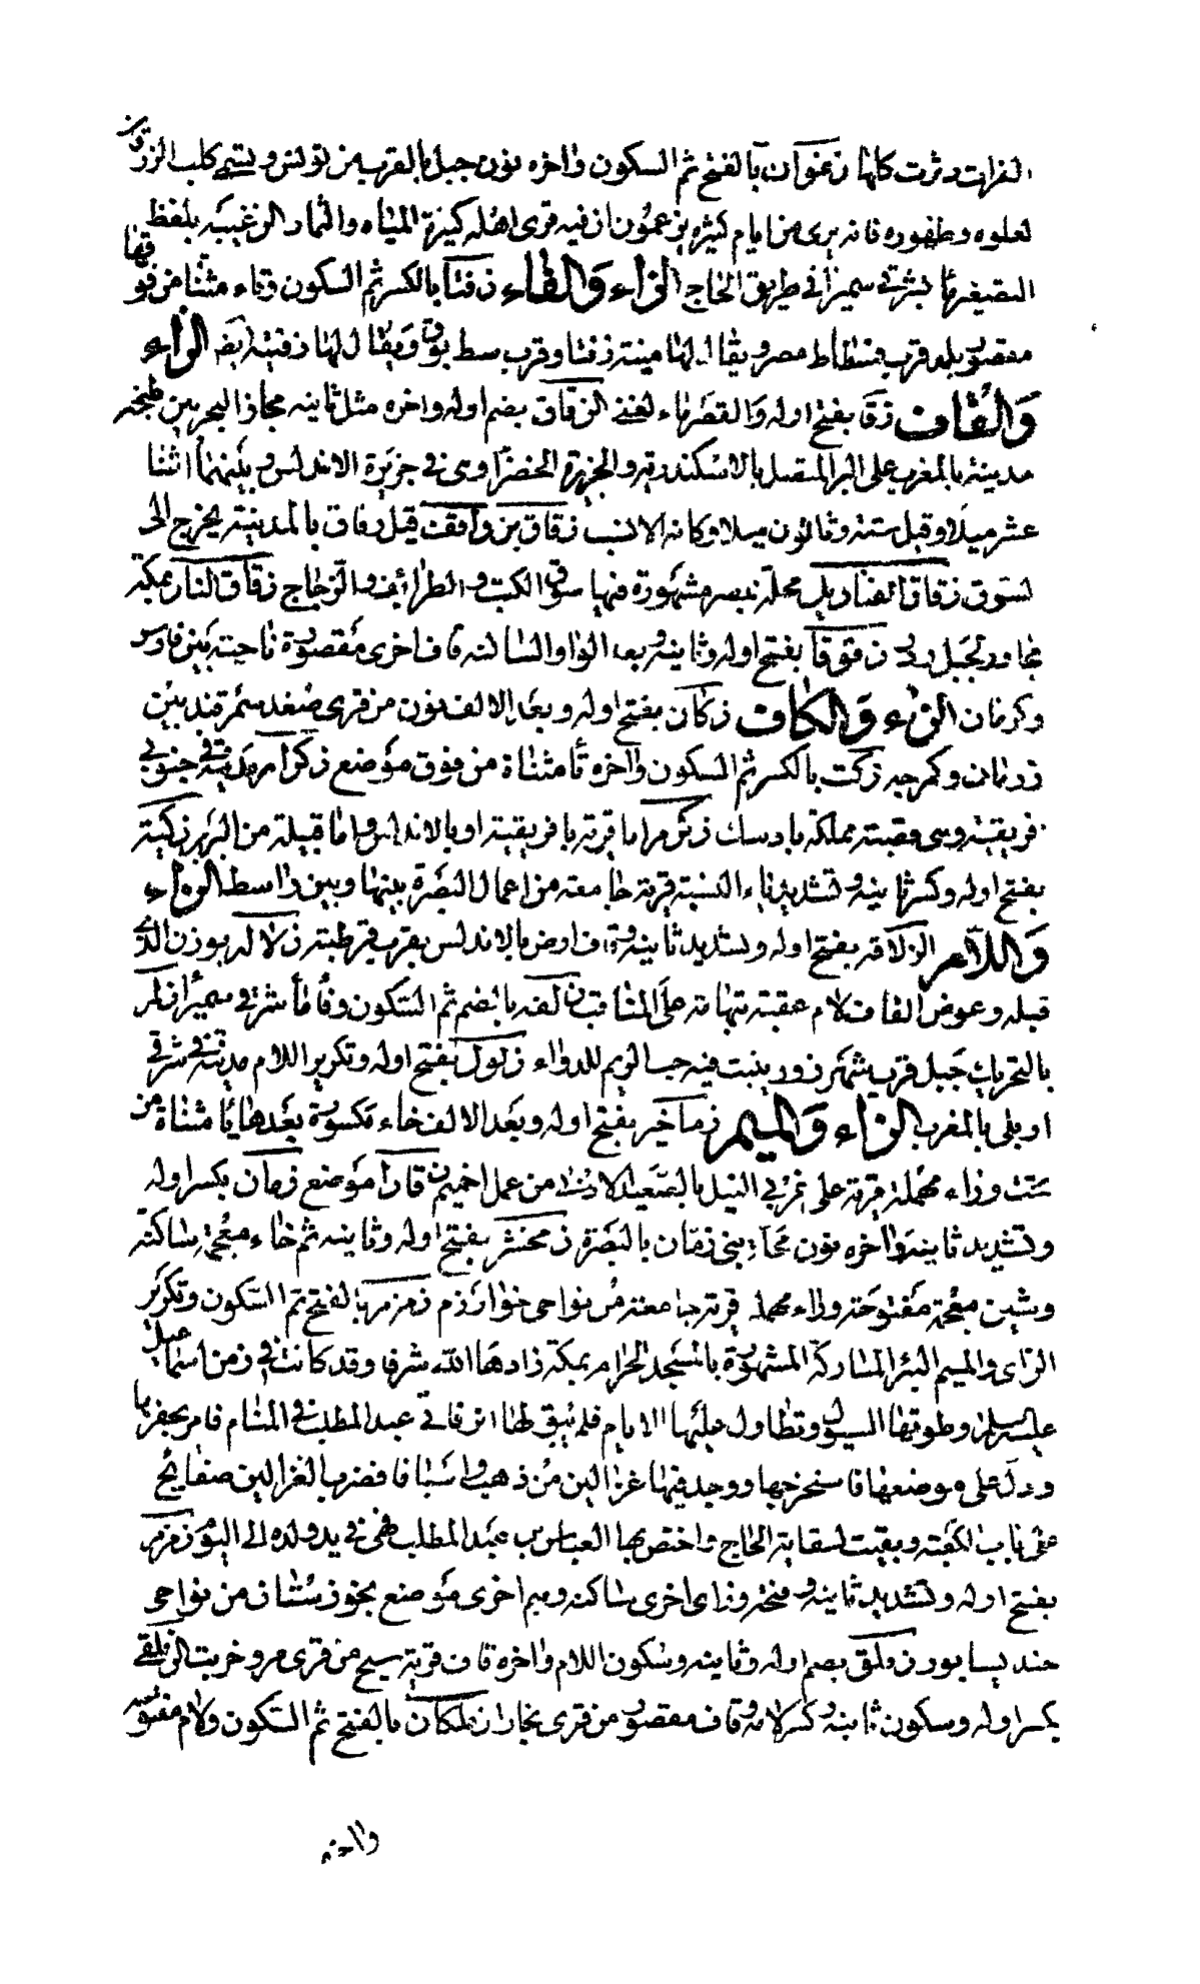 الفرات دثرت كلها زغوان بالفتح ثم السكون واخره نون جبل بالقرب من تونس ويسمى كلب الزقاق
لعلوه وظهوره فانه يرى من ايام كثيرة يزعمون ان فيه قرى اهله كثيرة المياه والثمار الزغيبه بلفظ
التصغير ماء بشرقي سميرا في طريق الحاج الزاء والفاء زفتا بالكسر ثم السكون وتاء مثناة من فوقها
مقصور بلد قرب فسطاط مصر ويقال لها منية زفتا وقرب سطنوف ويقال لها زفيته ايضا الزاء
والقاف زقا بفتح اوله والقصر ماء لغني الزقاق بضم اوله واخره مثل ثانيه مجاز البحر بين طنجة
مدينة بالمغرب على البر المتصل بالاسكندرية والجزيرة الخضرا وهي في جزيرة الاندلس وبينهما اثنا
عشر ميلا وقيل ستة وثمانون ميلا وكانه الانسب زقاق بن واقف قيل زقاق بالمدينة يخرج الى
السوق زقاق القناديل محلة بمصر مشهورة فيها سوق الكتب والطرائف والزجاج زقاق النار بمكة
مجاور لجبل زقوقا بفتح اوله وثانيه وبعد الواو الساكنة قاف اخرى مقصورة ناحية بين فارس
وكرمان الزاء والكاف زكان بفتح اوله وبعد الالف نون من قرى صغد سمرقند بين
زرمان وكمرجه زكت بالكسر ثم السكون واخره تا مثناة من فوق موضع زكرام مدينة في جنوبي
افريقية وهي قصبة مملكة بادس زكرم اما قرية بافريقية او بالاندلس واما قبيلة من البربر زكية
بفتح اوله وكسر ثانيه وتشديد ياء النسبة قرية جامعة من اعمال البصرة بينها وبين واسط الزاء
واللام الزلاقه بفتح اوله وتشديد ثانيه وقاف ارض بالاندلس بقرب قرطبة زلاله بوزن الذي
قبله وعوض القاف لام عقبة بتهامة على المناقب زلفه بالضم ثم السكون وفا ما شرقي سميرا زلم
بالتحريك جبل قرب شهرزور ينبت فيه حب الزلم للدواء زلول بفتح اوله وتكرير اللام مدينة في شرقي
ازيلي بالمغرب الزاء والميم زماخير بفتح اوله وبعد الالف خاء مكسورة بعدها يا مثناة من
تحت وراء مهملة قرية على غربي النيل بالصعيد الادنى من عمل اخميم زمارا موضع زمان بكسر اوله
وتشديد ثانيه واخره نون محلة بني زمان بالبصرة زمخشر بفتح اوله وثانيه ثم خاء معجمة ساكنة
وشين معجمة مفتوحة وراء مهملة قرية جامعة من نواحي خوارزم زمزم بالفتح ثم السكون وتكرير
الزاى والميم البئر المباركة المشهورة بالمسجد الحرام بمكة زادها الله شرفا وقد كانت في زمن اسماعيل
عليه السلام وطوتها السيول وتطاول عليها الايام فلم يبق لها اثر فاتي عبد المطلب في المنام فامر بحفرها
ودل على موضعها فاستخرجها ووجد فيها غزالين من ذهب واسيافا فضرب الغزالين صفايح
على باب الكعبة وبقيت لسقاية الحاج واختص بها العباس بن عبد المطلب فهي في يد ولده الى اليوم زمزم
بفتح اوله وتشديد ثانيه وفتحه وزاى اخرى ساكنة وميم اخرى موضع بخوزستان من نواحي
جنديسابور زملق بضم اوله وثانيه وسكون اللام واخره قاف قرية بسنج من قرى مرو خربت الزملقي
بكسر اوله وسكون ثانيه وكسر لامه وقاف مقصور من قرى بخارا زملكان بالفتح ثم السكون ولام مفتوحه
واخره